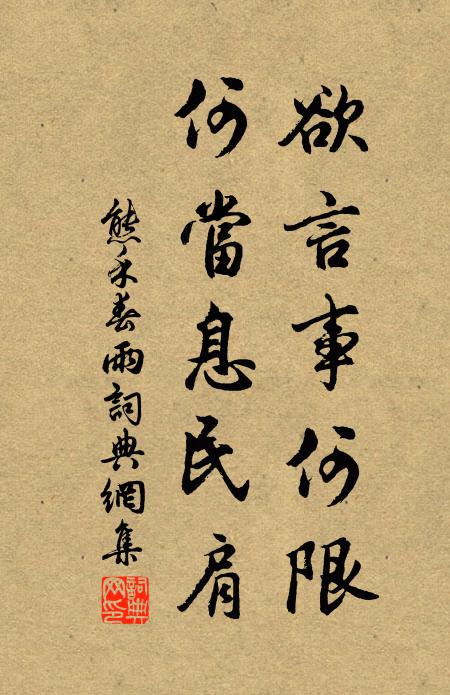 欲言事何限
何當息民肩
熊禾春雨詞典網集
詞典網印